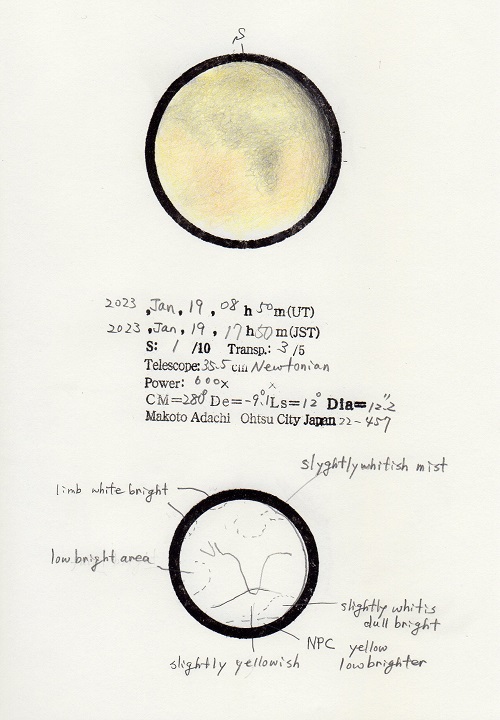 S
2023 , Jan, 19 , 08 h 50 m (UT)
2023 , Jan, 19 , 17 h 50 m (JST)
S: 1 /10 Transp.: 3 /5
Telescope: 35.5 cm Newtonian
Power: 600x x
CM=280° De=-9.1° Ls=12° Dia=12".2
Makoto Adachi Ohtsu City Japan 22-457
slyghtly whitish mist
limb white bright
low bright area
slightly whitis
dull bright
NPC yellow
low brighter
slightly yellowish